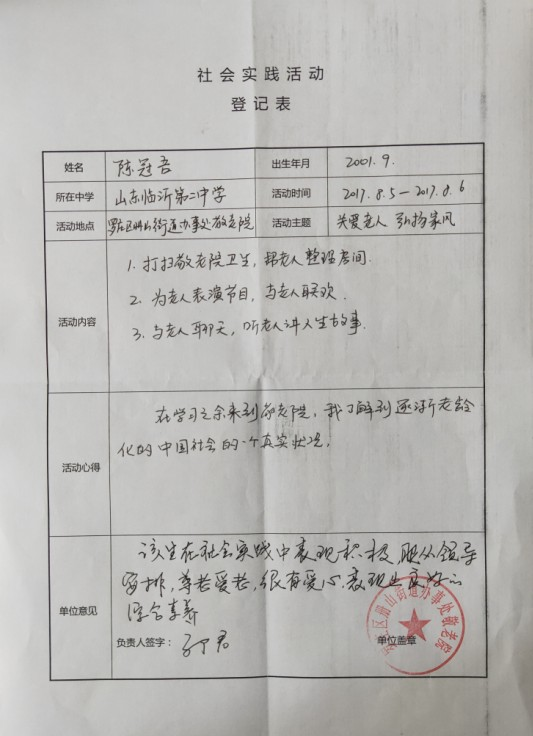 社会实践活动
登记表
姓名 陈冠吾 出生年月 2001.9.
所在中学 山东临沂第二中学 活动时间 2017.8.5—2017.8.6
活动地点 街道办事处敬老院 活动主题 关爱老人 弘扬家风
活动内容
1. 打扫敬老院卫生，帮老人整理房间.
2. 为老人表演节目，与老人联欢.
3. 与老人聊天，听老人讲人生故事.
活动心得
在学习之余来到敬老院，我了解到逐渐老龄
化的中国社会的一个真实状况。
单位意见
该生在社会实践中表现积极，服从领导
安排，尊老爱老，很有爱心，表现出良好的
综合素养
负责人签字：
单位盖章
区册山街道办事处敬老院